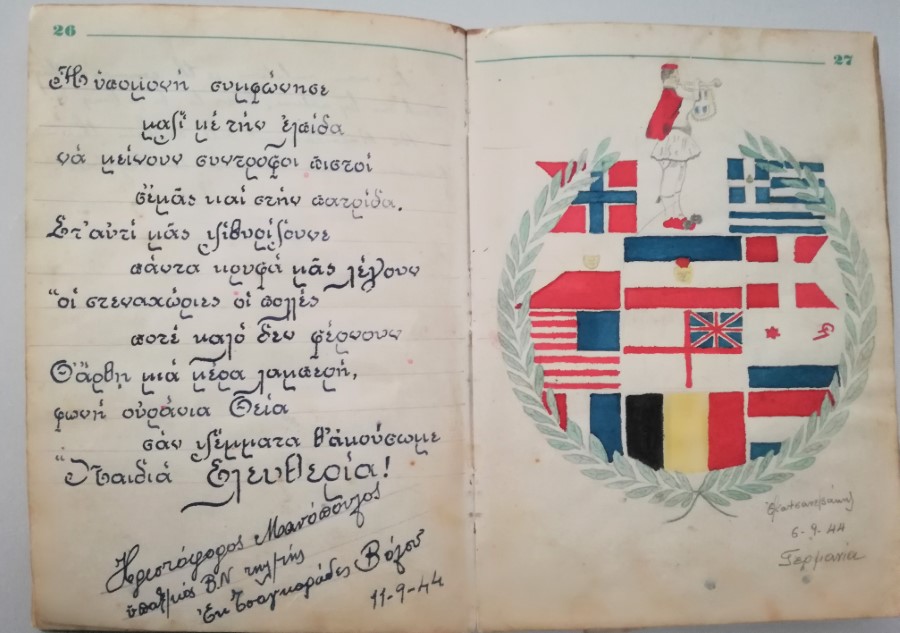 26
Ἡ ὑπομονή συμφώνησε
μαζί μέ τήν ἐλπίδα
νά μείνουν συντροφοι πιστοί
σ'ἐμᾶς καί στήν πατρίδα.
Στ'αὐτί μᾶς ψιθυρίζουνε
πάντα κρυφά μᾶς λέγουν
"οἱ στεναχώριες οἱ πολλές
ποτέ καλό δεν φέρνουν
Θἄρθῃ μιά μέρα λαμπερή,
φωνή οὐράνια Θεία
σάν ψέμματα θ'ἀκούσωμε
"Παιδιά Ελευθερία!
Χριστόφορος Μανόπουλος
Β.Ν
Ἐκ Τσαγκαράδες Βόλου
11-9-44
27
6-9-44
Γερμανία